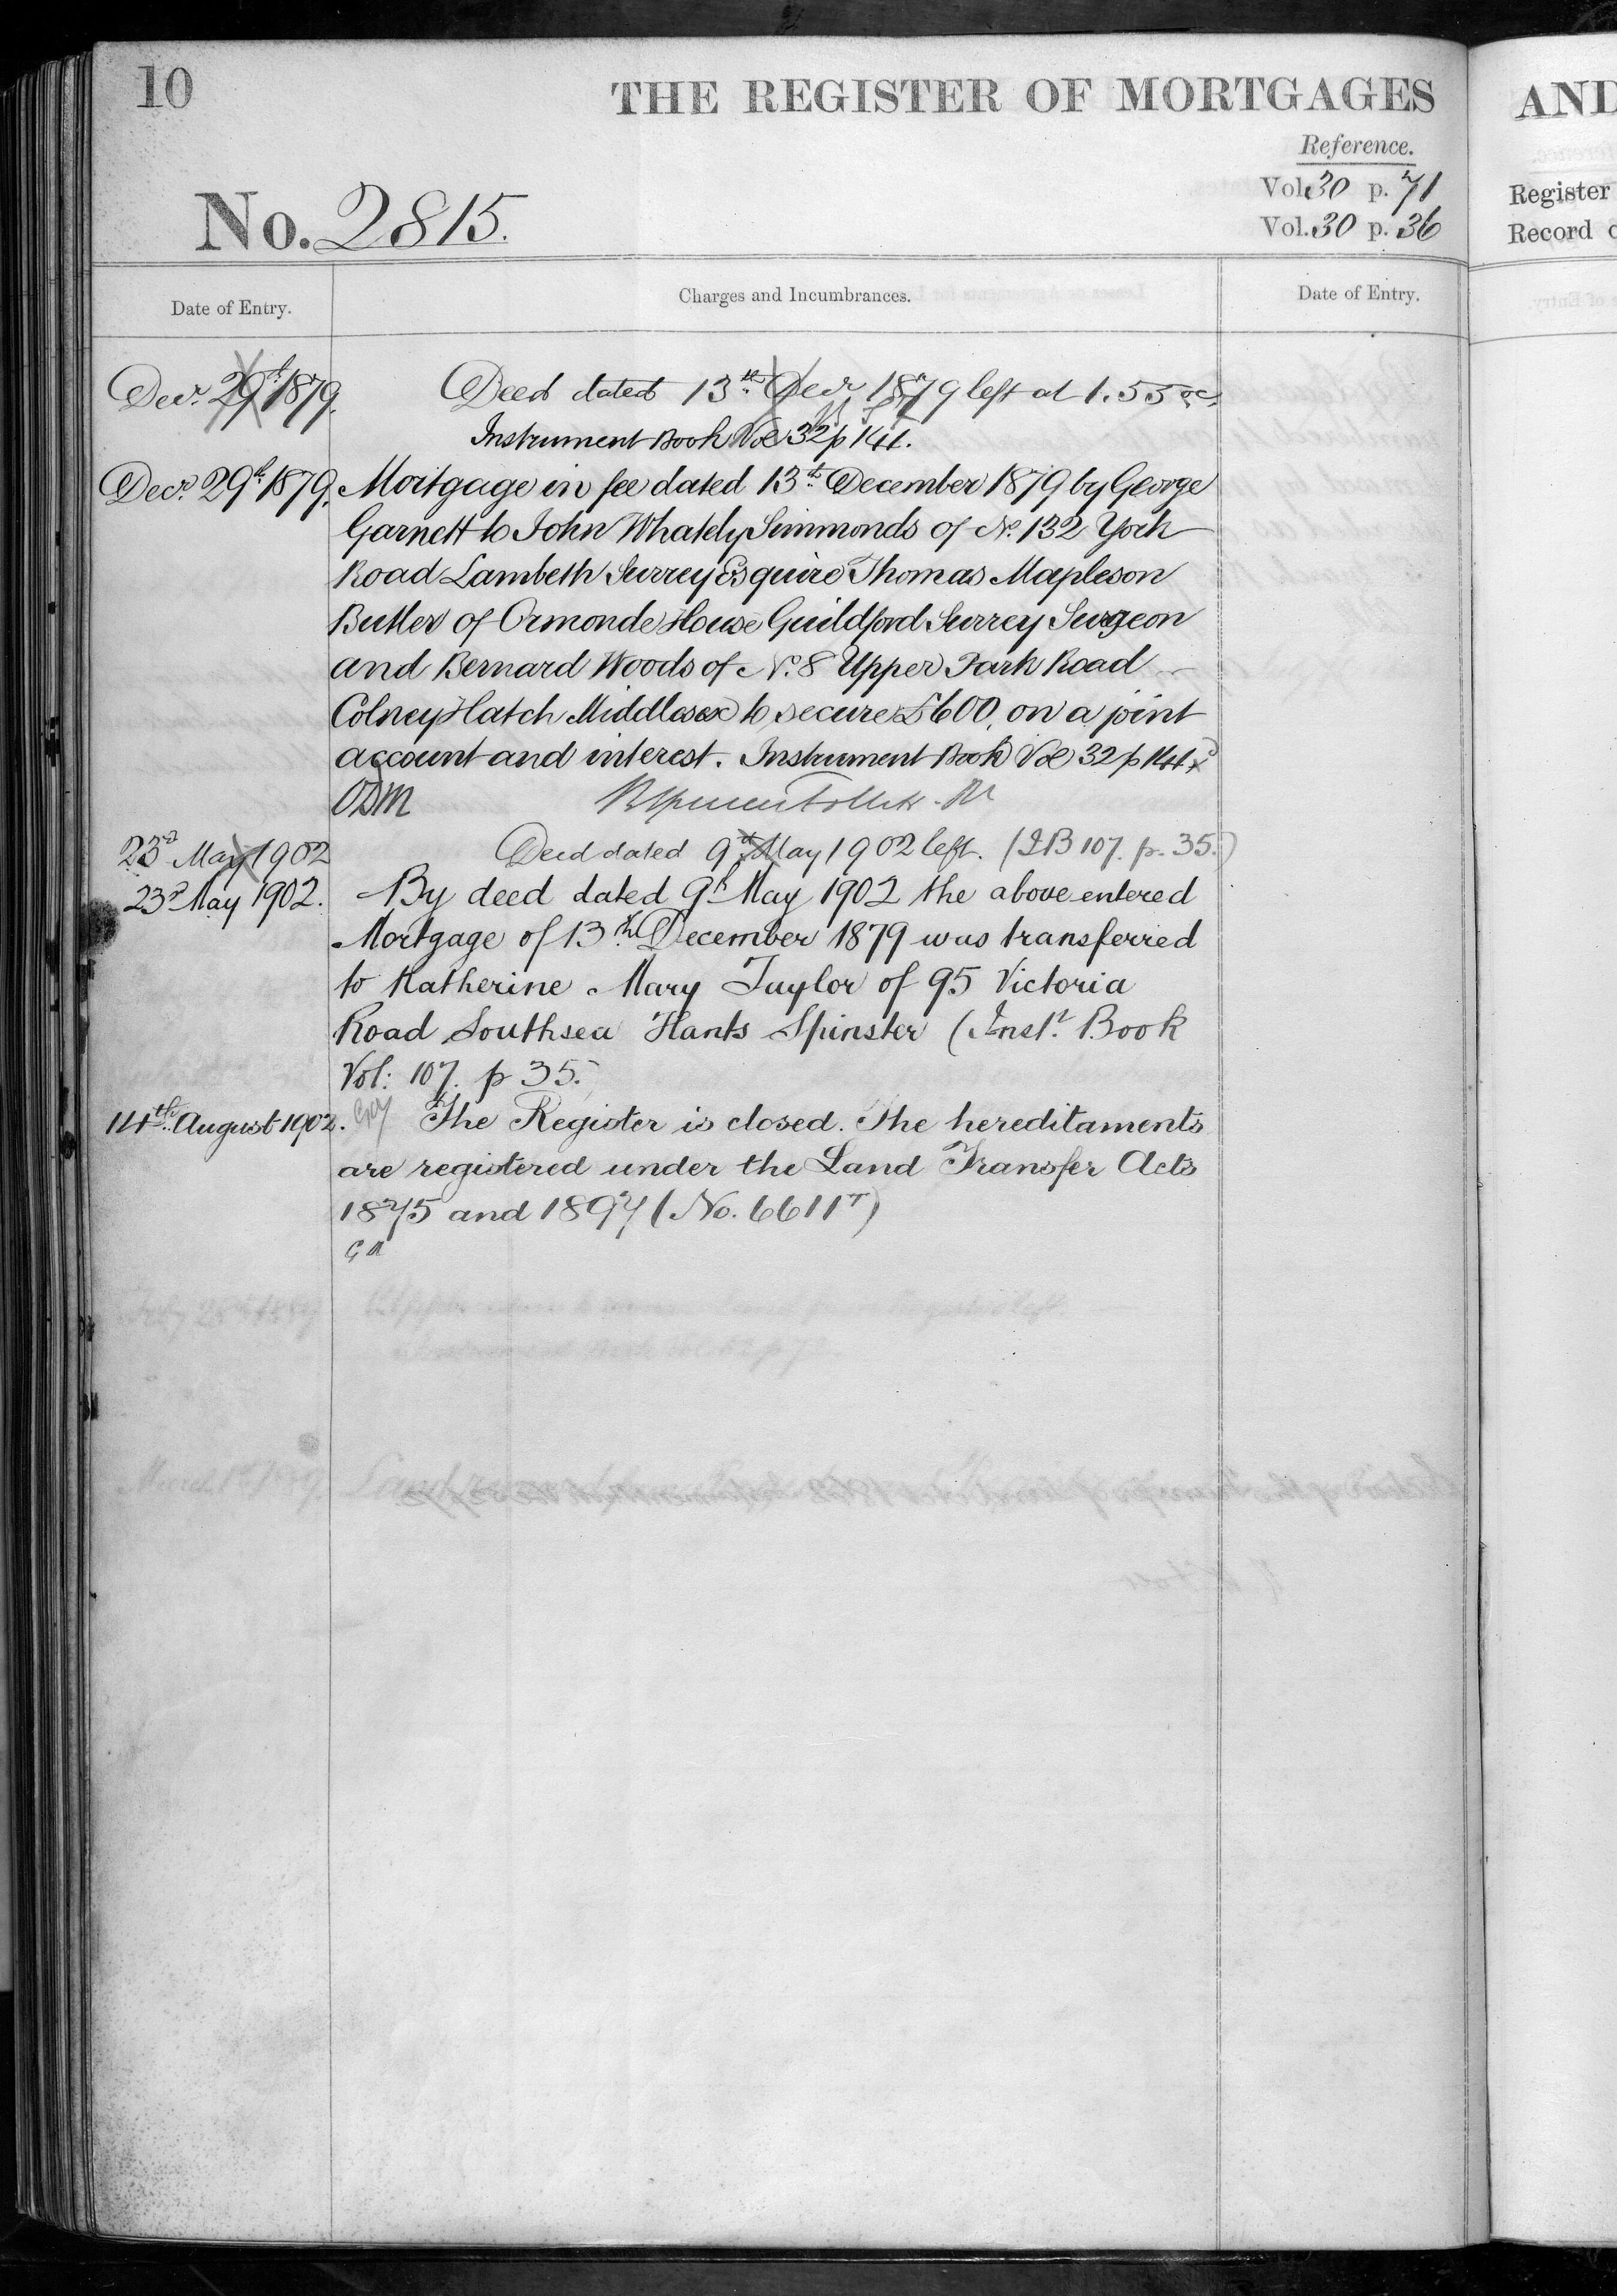 10
THE REGISTER OF MORTGAGES
AND
Reference.
Vol. 30 p. 71
Vol. 30 p. 36
Register
Record
No. 2815.
Date of Entry.
Charges and Incumbrances.
Date of Entry.
Decr. 29th 1879. Deed dated 13th Decr 1879 left at 1.55
Instrument Book Vol 32 p 144.
Decr. 29th 1879. Mortgage in fee dated 13th December 1879 by George
Garnett to John Whately Simmonds of No. 132 York
Road Lambeth Surrey Esquire Thomas Mapleson
Butler of Ormonde House Guildford Surrey Surgeon
and Bernard Woods of No. 8 Upper Park Road
Colney Hatch Middlesex to secure £600, on a joint
account and interest. Instrument Book Vol 32 p 144
23rd May 1902 Deed dated 9th May 1902 left. (IB 107. p. 35.)
23rd May 1902. By deed dated 9th May 1902 the above entered
Mortgage of 13th December 1879 was transferred
to Katherine Mary Taylor of 95 Victoria
Road Southsea Hants Spinster (Inst. Book
Vol: 107. p 35.
14th August 1902. The Register is closed. The hereditaments
are registered under the Land Transfer Acts
1875 and 1897 (No. 6611T)